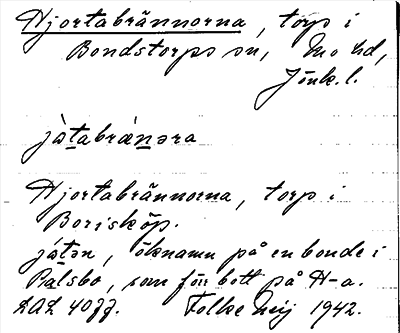 Hjortabrännorna, torp i
Bondstorps sn, Mo hd,
Jönk. l.
jàtabrænəra
Hjortabrännorna, torp i
Borisköp.
játən, öknamn på en bonde i
Palsbo, som förr bott på H-a.
Folke 1942.